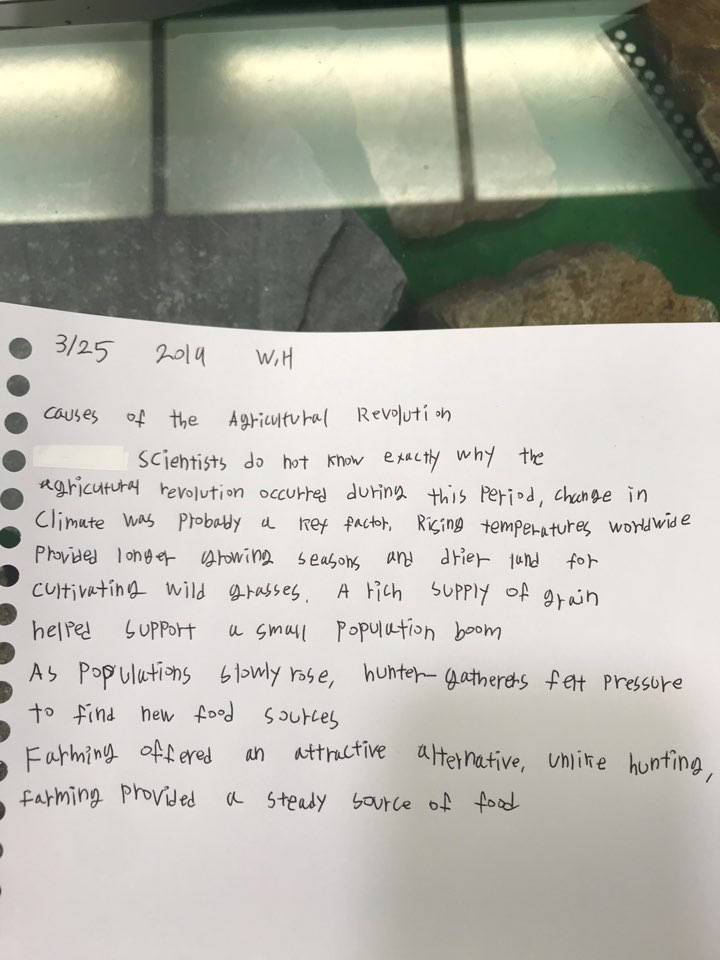 3/25 2019 W,H
causes of the Agricultural Revolution
Scientists do not know exactly why the
agricutural revolution occurred during this Period, change in
Climate was Probably a key factor, Rising temperatures worldwide
Provided longer growing seasons and drier land for
cultivating wild grasses. A rich supply of grain
helped support a small population boom
As populations slowly rose, hunter-gatherers felt pressure
to find new food sources
Farming offered an attractive alternative, unlike hunting,
farming provided a steady source of food